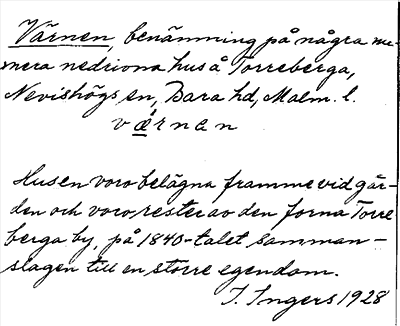 Värnen, benämning på några nu-
mera nedrivna hus å Torreberga,
Nevishögs sn, Bara hd, Malm. l.
værnan
Husen voro belägna framme vid går-
den och voro rester av den forna Torre
berga by, på 1840-talet samman-
slagen till en större egendom.
I. Ingers 1928